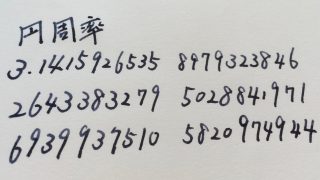 円周率
3.1415926535 8979323846
2643383279 5028841971
6939937510 5820974944